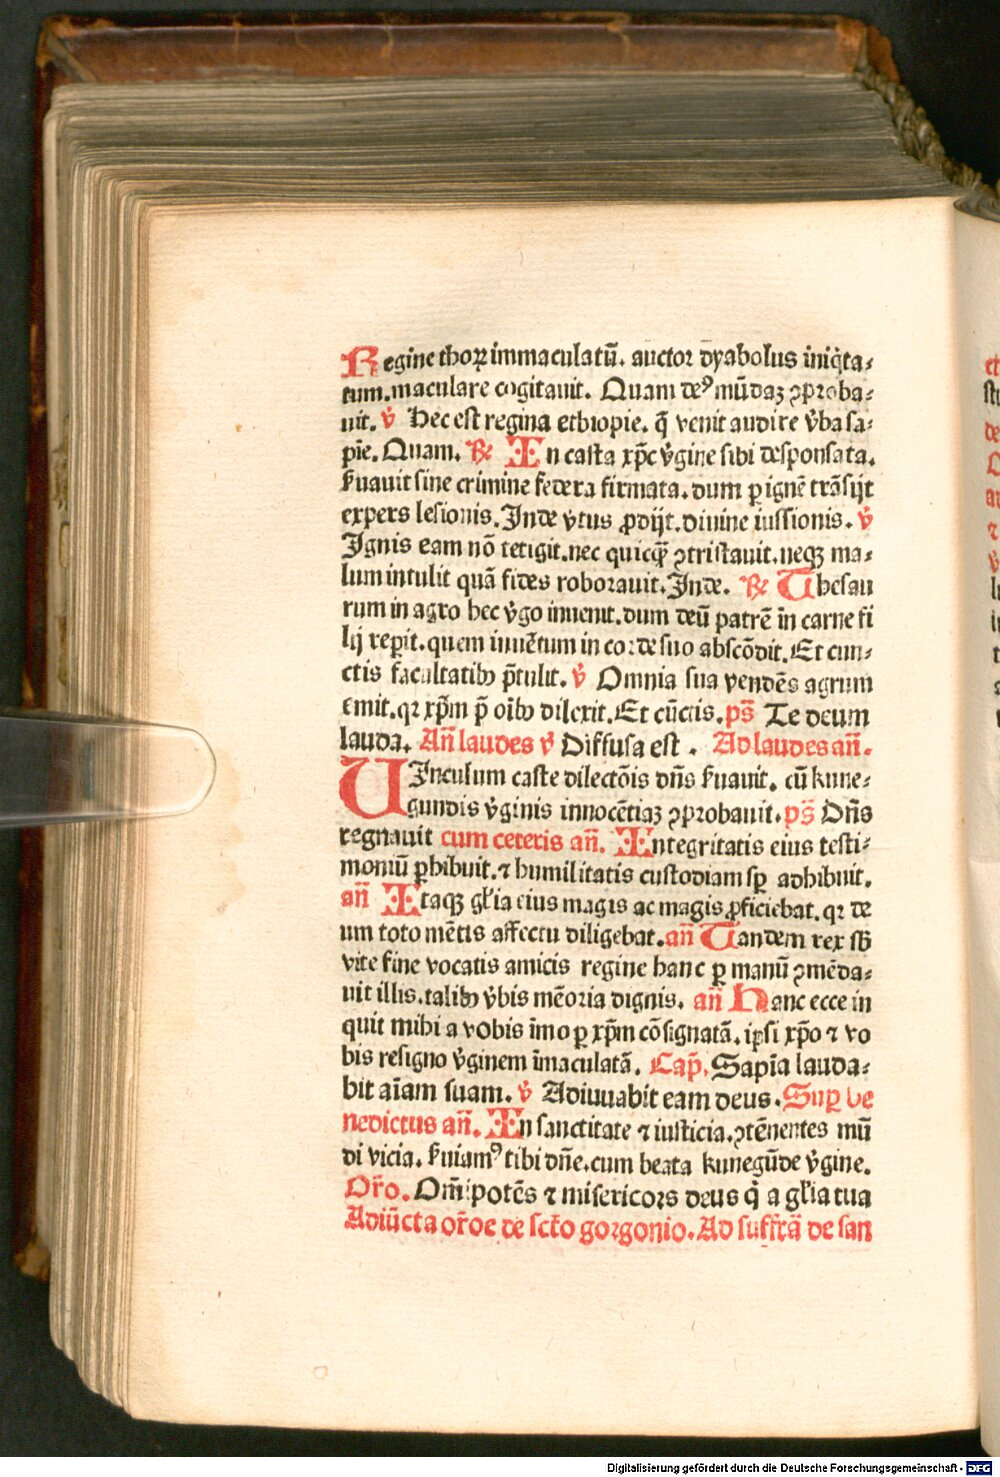 Regine thoꝝ immaculatū. auctor dyabolus iniq̇ta⸗
tum. maculare cogitauit. Quam deꝰ mūdaꝫ ꝯproba⸗
uit. v̇ Hec est regina ethiopie. q̄ venit audire v̇ba sa⸗
pīe. Quam. ℞ In casta xp̄c v̇gine sibi desponsata.
ẜuauit sine crimine federa firmata. dum ꝑ ignē trāsijt
expers lesionis. Inde v̇tus ꝓdijt. diuine iussionis. v̇
Ignis eam nō tetigit. nec quicq̄ȝ ꝯtristauit. neqꝫ ma⸗
lum intulit quā fides roborauit. Inde. ℞ Thesau
rum in agro hec v̇go inuenit. dum deū patrē in carne fi
lij reꝑit. quem inuētum in corde suo abscōdit. Et cun⸗
ctis facultatibꝰ p̄tulit. v̇ Omnia sua vendēs agrum
emit. qꝛ xp̄m p̄ oībꝰ dilexit. Et cūctis. ps̄ Te deum
lauda. An̄ laudes v̇ Diffusa est . Ad laudes an̄.
UInculum caste dilectōis dn̄s ẜuauit. cū kune⸗
gundis v̇ginis innocētiaꝫ ꝯprobauit. ps̄ Dn̄s
regnauit cum ceteris an̄. Integritatis eius testi⸗
moniū ꝑhibuit. ⁊ humilitatis custodiam sꝑ adhibuit.
an̄ Itaqꝫ gl̄ia eius magis ac magis ꝓficiebat. qꝛ de
um toto mētis affectu diligebat. an̄ Tandem rex sb̄
vite fine vocatis amicis regine hanc ꝑ manū ꝯmēda⸗
uit illis. talibꝰ v̇bis mēoria dignis. an̄ Hanc ecce in
quit mihi a vobis īmo ꝑ xp̄m cōsignatā. ip̄si xp̄o ⁊ vo
bis resigno v̇ginem īmaculatā. Cap̄. Sapīa lauda⸗
bit aīam suam. v̇ Adiuuabit eam deus. Suꝑ be
nedictus an̄. In sanctitate ⁊ iusticia. ꝯtēnentes mū
di vicia. ẜuiamꝰ tibi dn̄e. cum beata kunegūde v̇gine.
Or̄o. Om̄ipotēs ⁊ misericors deus q̇ a gl̄ia tua
Adiūcta or̄oe de sct̄o gorgonio. Ad suffrā de san
Digitalisierung gefördert durch die Deutsche Forschungsgemeinschaft - DFG